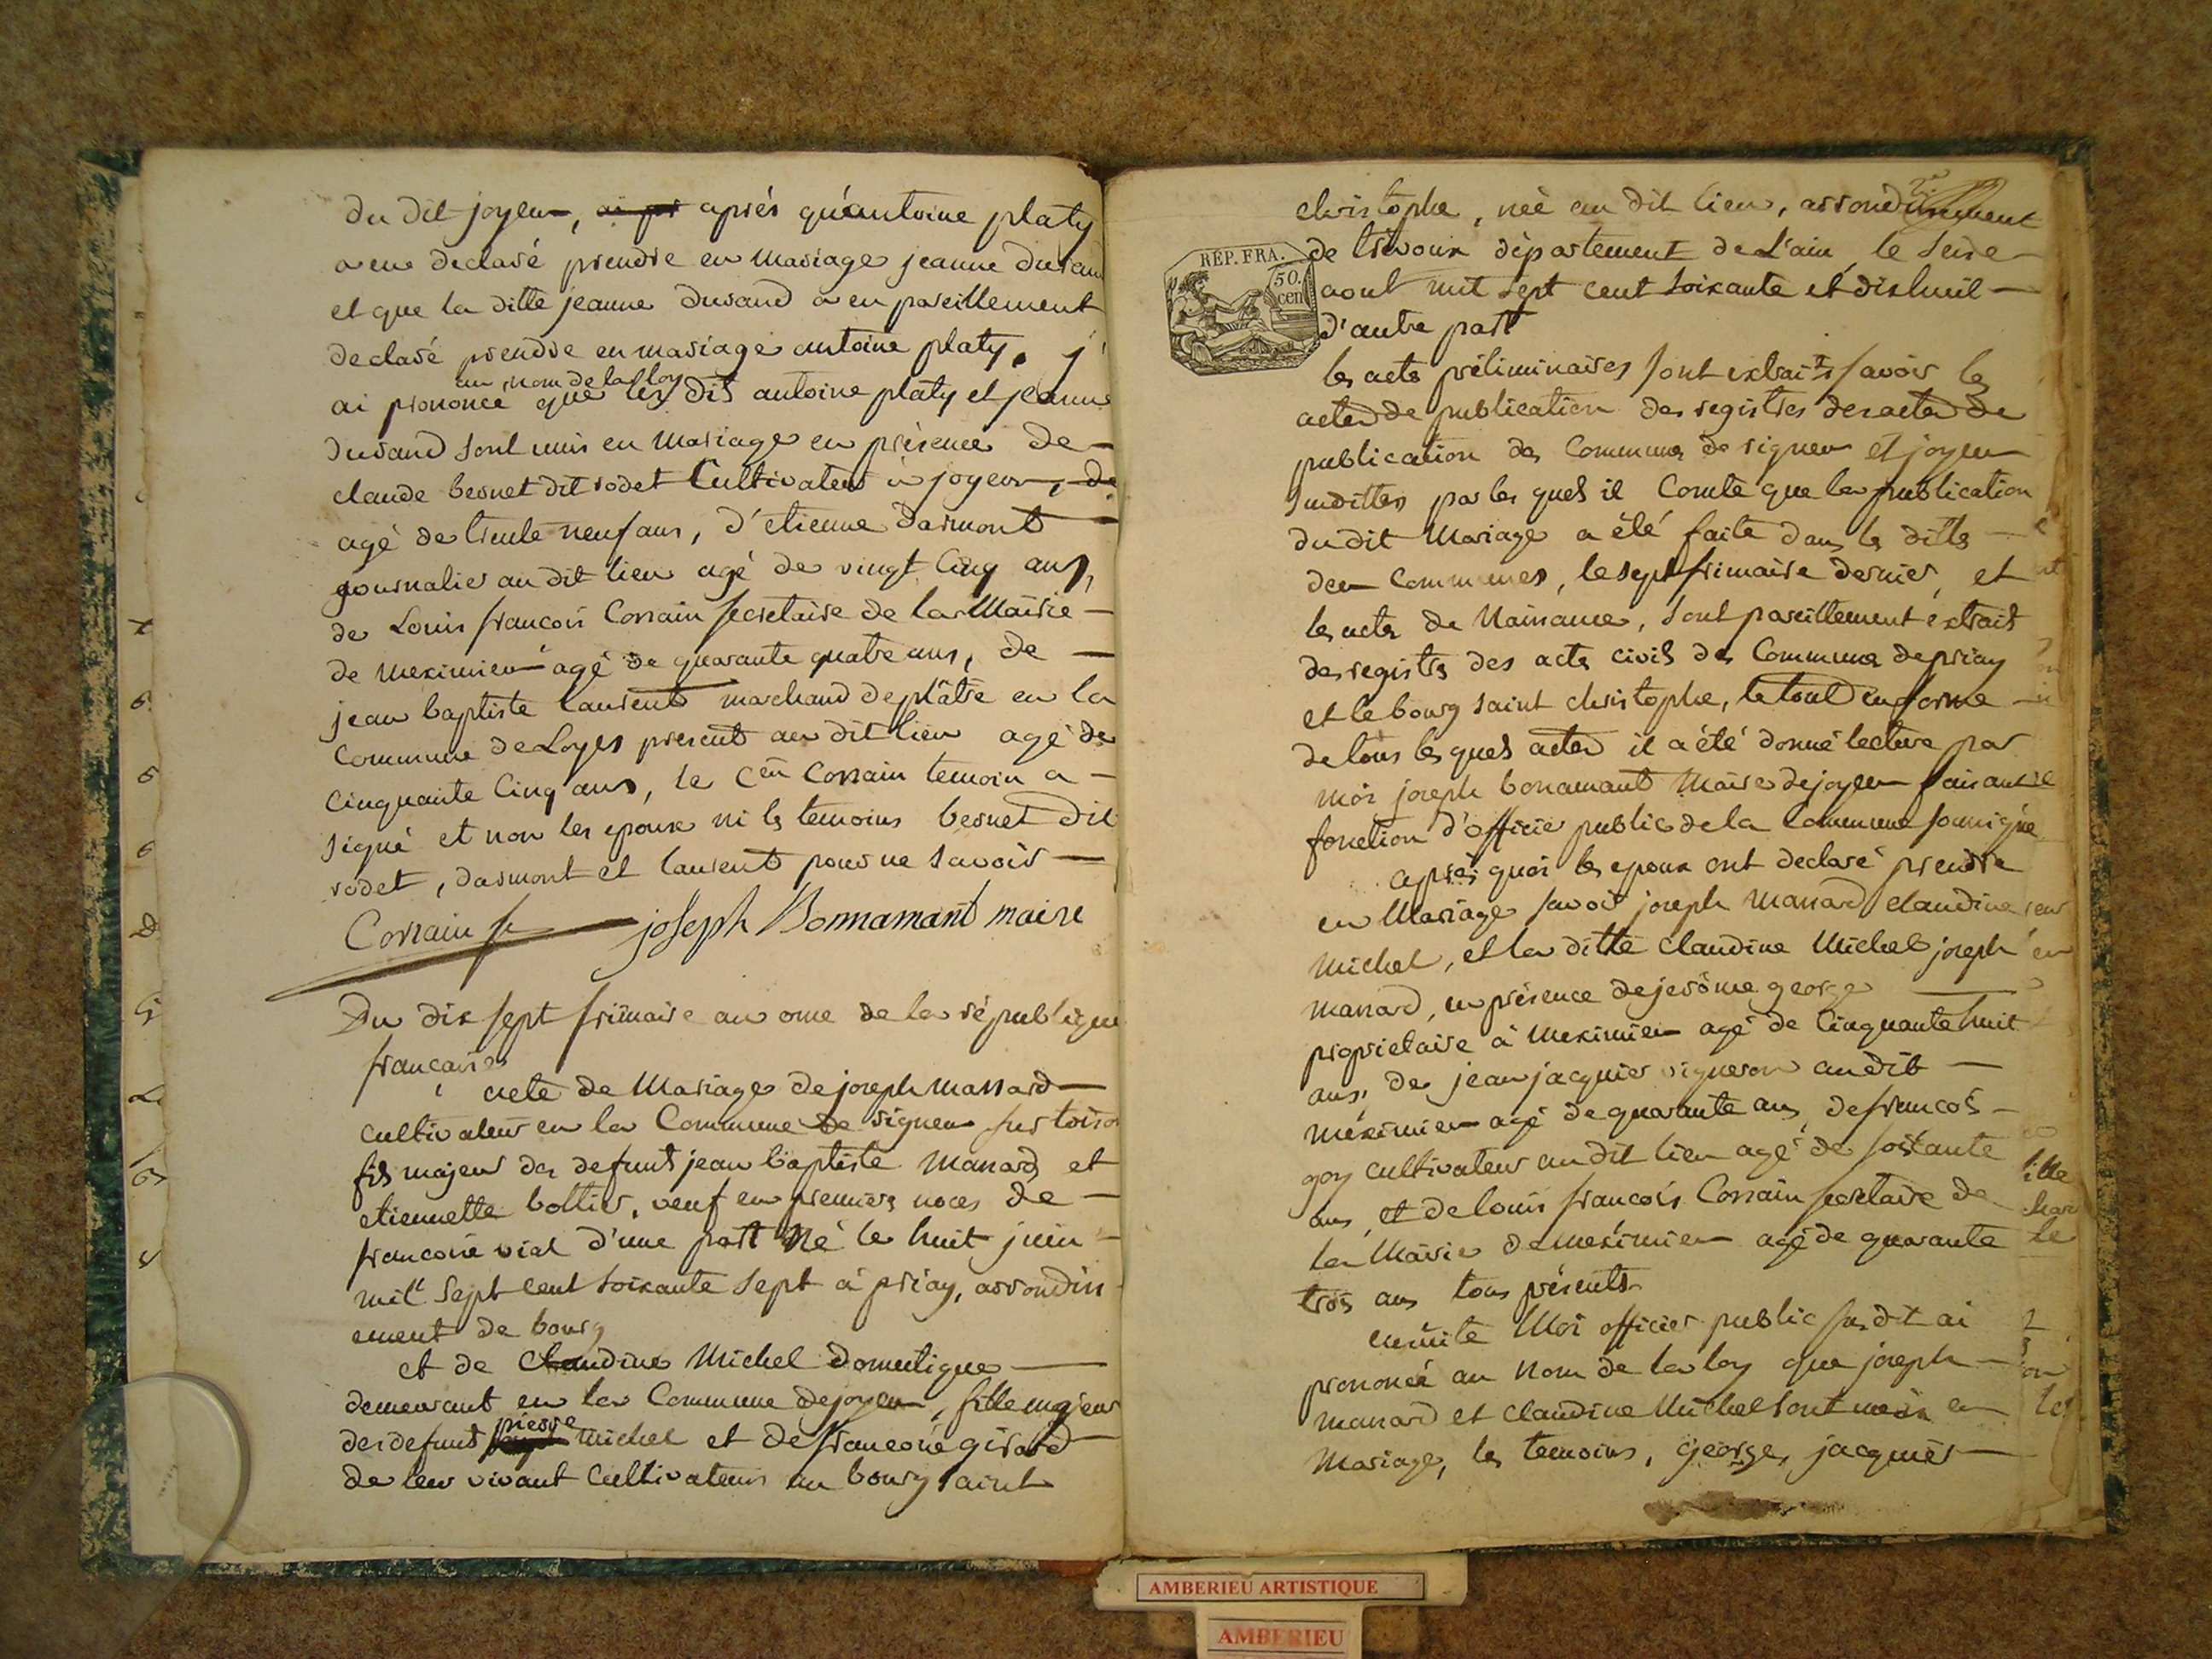 du dit joyeux, après qu'antoine platy
a eu declaré prendre en mariage jeanne durand
et que la ditte jeanne durand a eu pareillement
declaré prendre en mariage antoine platy, j'
au nom de la loy
ai prononcé que les dits antoine platy et jeanne
durand sont unis en mariage en présence de
claude bernet dit rodet Cultivateur à joyeux,
agé de trente neuf ans, d'etienne darmont
journalier au dit lieu agé de vingt Cinq ans,
de Louis francois Corrain secretaire de la Mairie
de meximieux agé de quarante quatre ans, de
jean baptiste laurent marchand de plâtre en la
Commune de Loyes present au dit lieu agé de
Cinquante Cinq ans, le Cen Corrain temoin a
signé et non les epoux ni les temoins bernet dit
rodet, darmont et laurent pour ne savoir
Corrain joseph Bonnamant maire
Du dix sept frimaire an onze de la république
francaise
acte de Mariage de joseph massard
cultivateur en la Commune de rigneu sur
fils majeur des defunts jean baptiste massard et
etiennette bollier, veuf en premiers noces de
francoise vial d'une part Né le huit juin
mil sept cent soixante sept à priay, arrondiss
ement de bourg
et de Claudine Michel domestique
demeurant en la Commune de joyeux, fille majeur
des defunts pierre michel et de francoise girard
de leur vivant Cultivateurs au bourg saint
christophe, née au dit lieu, arrondissement
de trévoux département de L'ain le seize
RÉP. FRA.
50.
cen
aout mil sept cent soixante et dixhuit
d'autre part
les acte préliminaires sont extraits savoir les
actes de publication des registres des actes de
publication des Communes de rigneu et joyeux
susdittes par les quels il Conste que la publication
du dit Mariage a été faite dans les dittes
deux Communes, le sept frimaire dernier, et
les actes de Naissance, sont pareillement extrait
des registres des actes civils des Communes de priay
et le bourg saint christophe, le tout en forme
de tous les quels actes il a été donné lecture par
moi joseph bonamant Maire de joyeux faisant
fonction d'officier public de la Commune soussigné
après quoi les epoux ont declaré prendre
en Mariage savoir joseph massard claudine
michel, et la ditte claudine Michel joseph
massard, en présence de jerôme george
proprietaire à meximieux agé de Cinquante huit
ans, de jean jacquier vigneron au dit
méximieux agé de quarante ans, de francois
goy cultivateur au dit lieu agé de soixante
ans, et de louis francois Corrain secretaire de
la Mairie de meximieux agé de quarante
trois ans tous présents
ensuite Moi officier public susdit ai
prononcé au Nom de la loy que joseph
massard et claudine Michel sont unis en
Mariage, les temoins, george, jacquier
AMBERIEU ARTISTIQUE
AMBERIEU